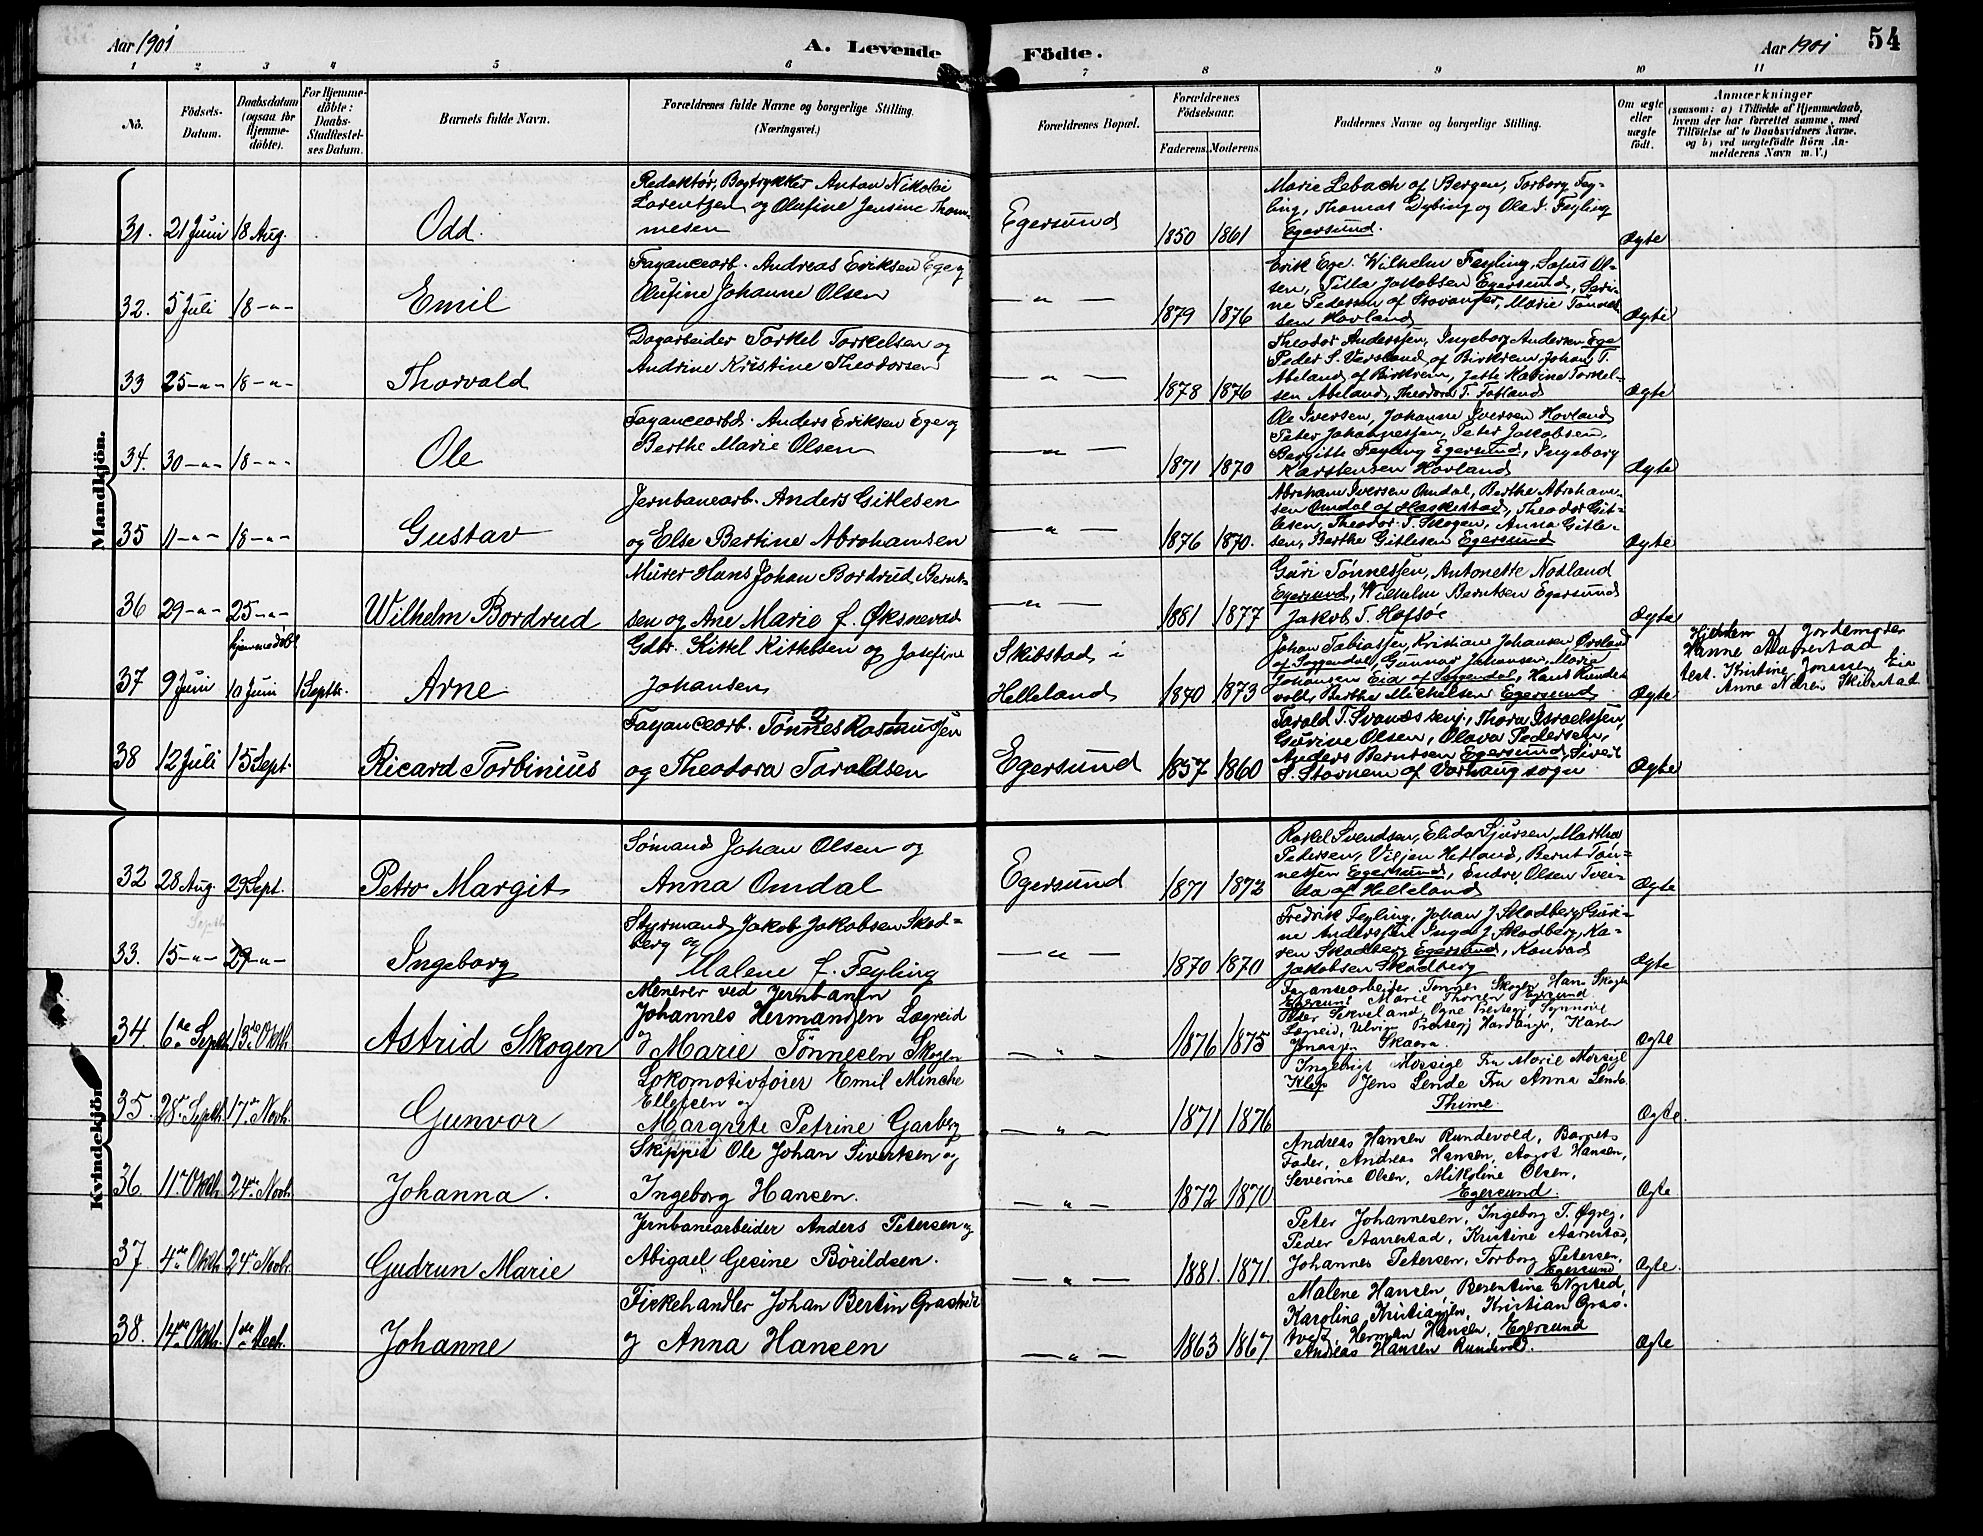 Aar 1901
A. Levende
Födte.
Aar 1901
54
1 2 3 4 5 6 7 8 9 10 11
Nô.
Födsels-Datum.
Daabsdatum (ogsaa for Hjemme-döbte).
For Hjemme-döbte: Daabs-Stadfæstel-ses Datum.
Barnets fulde Navn.
Forældrenes fulde Navne og borgerlige Stilling. (Næringsvei.)
Forældrenes Bopæl.
Forældrenes Födselsaar.
Faderens. Moderens.
Faddernes Navne og borgerlige Stilling.
Om ægte eller uægte födt.
Anmærkninger
(saasom: a) i Tilfælde af Hjemmedaab,
hvem der har forrettet samme, med
Tilföielse af to Daabsvidners Navne,
og b) ved uægtefödte Börn An-
melderens Navn m. V.)
Mandkjön.
31. 21 Juni 18 Aug. Odd.
Redaktør, Bogtrykker Anton Nikolai
Lorentzen og Olufine Jensine Thom-
mesen
Egersund 1850 1861
Marie Lebach af Bergen, Torborg Fey-
ling, Thomas Dybing og Ole I. Feyling
Egersund.
Ægte
32. 5 Juli 18 -"- Emil
Fayancearb. Andreas Eriksen Ege og
Olufine Johanne Olsen
— " — 1879 1876
Erik Ege. Wilhelm Feyling, Sofus Ol-
sen, Tilla Jakobsen Egersund, Seri-
ne Pedersen af Stavanger, Marie Tønnes-
sen Hovland
Ægte
33 25 -"- 18 -"- Thorvald
Dagarbeider Torkel Torkelsen og
Andrine Kristine Theodorsen
— " — 1878 1876
Theodor Anderssen, Ingeborg Andersen Ege
Peder S. Versland af Birkrem, Johan T.
Abeland af Birkrem, Jette Karine Torkel-
sen Abeland, Theodora T. Fotland
Ægte
34. 30 -"- 18 -"- Ole
Fayancearbd. Anders Eriksen Ege og
Berthe Marie Olsen
— " — 1871 1870
Ole Iversen, Johanne Iversen Hovland
Peter Johannessen, Peter Jakobsen,
Bergitte Feyling Egersund, Ingeborg
Karstensen Hovland
Ægte
35 11 -"- 18 -"- Gustav
Jernbanearb. Anders Gitlesen
og Else Bertine Abrahamsen
— " — 1876 1870.
Abraham Iversen Omdal, Berthe Abraham-
sen Omdal af Heskestad, Theodor Git-
lesen, Theodor T. Skogen, Anna Gitle-
sen, Berthe Gitlesen Egersund
Ægte
36 29 -"- 25 -"- Wilhelm Bordrud
Murer Hans Johan Bordrud Bernt-
sen og Ane Marie f. Øksnevad
— " — 1881 1877
Guri Tønnessen, Antonette Nodland
Egersund, Wilhelm Berntsen Egersund
Jakob T. Hofsøe
Ægte
37 9 Juni hjemmedøbt 10 Juni 1 Septbr. Arne
Gdbr. Kittel Kittelsen og Josefine
Johansen
Skibstad i
Helleland
1840 1873
Johan Tobiassen, Kristiane Johansen Ørsland
af Soggendal, Gunnar Johansen, Marie
Johansen Eia af Soggendal, Hans Runde-
vold, Berthe Michelsen Egersund
Ægte
Hjdøbt af Jordemoder
Hanne Aarrestad
test. Kristine Jonassen Eia
Anne Nilsen Skibstad
38 12 Juli 15 Sept. Ricard Torbinius
Fayancearb. Tønnes Rasmussen
og Theodora Taraldsen
Egersund 1857 1860
Tarald T. Svanæs senj., Thora Israelssen,
Gurine Olsen, Olava Pedersen,
Anders Berntsen Egersund, Sivert
S. Stavnem af Varhaug sogn
Ægte
Kvindekjön.
32 28 Aug. 29 Sept. Petra Margit
Sømand Johan Olsen og
Anna Omdal
Egersund 1871 1872
Rakel Svendsen, Elida Sjursen, Martha
Pedersen, Viljen Hetland, Bernt Tøn-
nessen Egersund, Endre Olsen Tvei-
da af Helleland
Ægte
Septbr.
33. 15 -"- 29 -"- Ingeborg
Styrmand Jakob Jakobsen Skad-
berg og
Malene f. Feyling
— " — 1870 1870
Fredrik Feyling, Johan J. Skadberg, Guri-
ne Anderssen Inga J. Skadberg, Ka-
ren Skadberg Egersund, Konrad
Jakobsen Skadberg
Ægte
34. 6te Septbr 13de Oktbr. Astrid Skogen
Menerer ved Jernbanen
Johannes Hermansen Lægreid
og Marie Tønnesen Skogen
— " — 1876 1875
Fayansearbeider Tønnes Skogen Hans Skogen
Egersund Marie Thorsen Egersund
Peder Skveland, Ogne Prestegj, Synnøve
Lægreid, Ulvig Prestegj Hardanger, Karen
Jonassen Skaara.
Ægte
35. 28. Septbr 17de Novbr. Gunvor
Lokomotivfører Emil Minche
Ellefsen og
Margrete Petrine Garberg
— " — 1871 1876
Ingebrigt Morsige Fru Marie Morsige
Klep Jens Lende Fru Anna Lende
Thime.
Ægte.
36. 11te Oktbr. 24de Novbr. Johanna.
Skipper Ole Johan Sivertsen og
Ingeborg Hansen.
— " — 1872 1870
Andreas Hansen Rundevold, Barnets
Fader, Andreas Hansen, Aagot Hansen,
Severine Olsen, Mikoline Olsen,
Egersund.
Ægte
37. 4de Oktbr. 24de Novbr. Gudrun Marie
Jernbanearbeider Anders Petersen og
Abigael Gesine Bårildsen.
— " — 1881. 1871.
Peter Johannesen, Ingeborg T. Øgrey,
Peder Aarrestad, Kristine Aarrestad,
Johannes Petersen, Torborg Petersen,
Egersund
Ægte.
38. 14de Oktbr. 1ste Decbr. Johanne
Fiskehandler Johan Bertin Grastveit
og Anna Hansen
— " — 1863 1867
Malene Hansen, Berentine Nysted,
Karoline Kristiansen, Kristian Gras-
tveit, Herman Hansen, Egersund
Andreas Hansen Rundevold.
Ægte